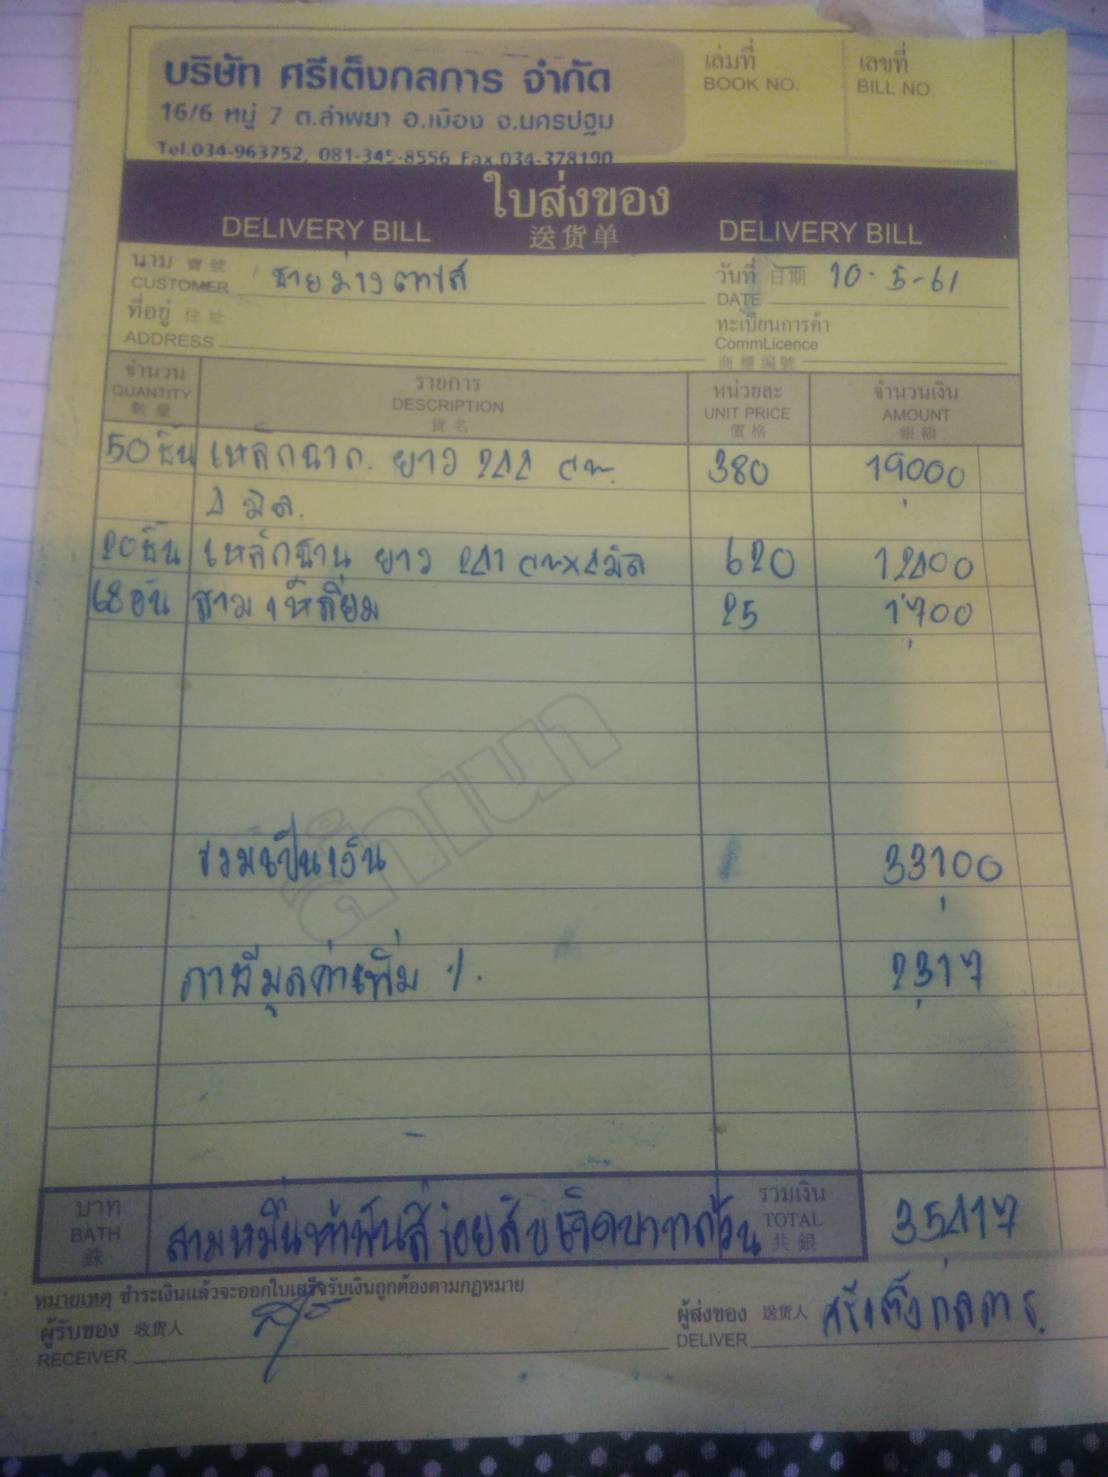 บริษัท ศรีเต็งกลการ จำกัด
16/6 หมู่ 7 ต.ลำพยา อ.เมือง จ.นครปฐม
Tel.034-963752, 081-345-8556 Fax.034-378190
เล่มที่
BOOK NO.
เลขที่
BILL NO.
ใบส่งของ
DELIVERY BILL 送货单 DELIVERY BILL
นาม 寶號
CUSTOMER
วันที่ 日期 10-5-61
DATE
ที่อยู่ 住址
ADDRESS
ทะเบียนการค้า
CommLicence
商標編號
จำนวน
QUANTITY
數量
รายการ
DESCRIPTION
貨名
หน่วยละ
UNIT PRICE
價格
จำนวนเงิน
AMOUNT
銀額
50 ชิ้น เหล็กฉาก ยาว 244 ซม. 380 19000
4 มิล.
20 ชิ้น เหล็กฐาน ยาว 241 ซม x 4 มิล 620 12400
68 อัน สามเหลี่ยม 25 1700
สำเนา
รวมเป็นเงิน 33100
ภาษีมูลค่าเพิ่ม %. 2317
บาท
BATH
銖
สามหมื่นห้าพันสี่ร้อยสิบเจ็ดบาทถ้วน
รวมเงิน
TOTAL
共銀
35417
หมายเหตุ ชำระเงินแล้วจะออกใบเสร็จรับเงินถูกต้องตามกฎหมาย
ผู้รับของ 收货人
RECEIVER
ผู้ส่งของ 送货人 ศรีเต็งกลการ.
DELIVER